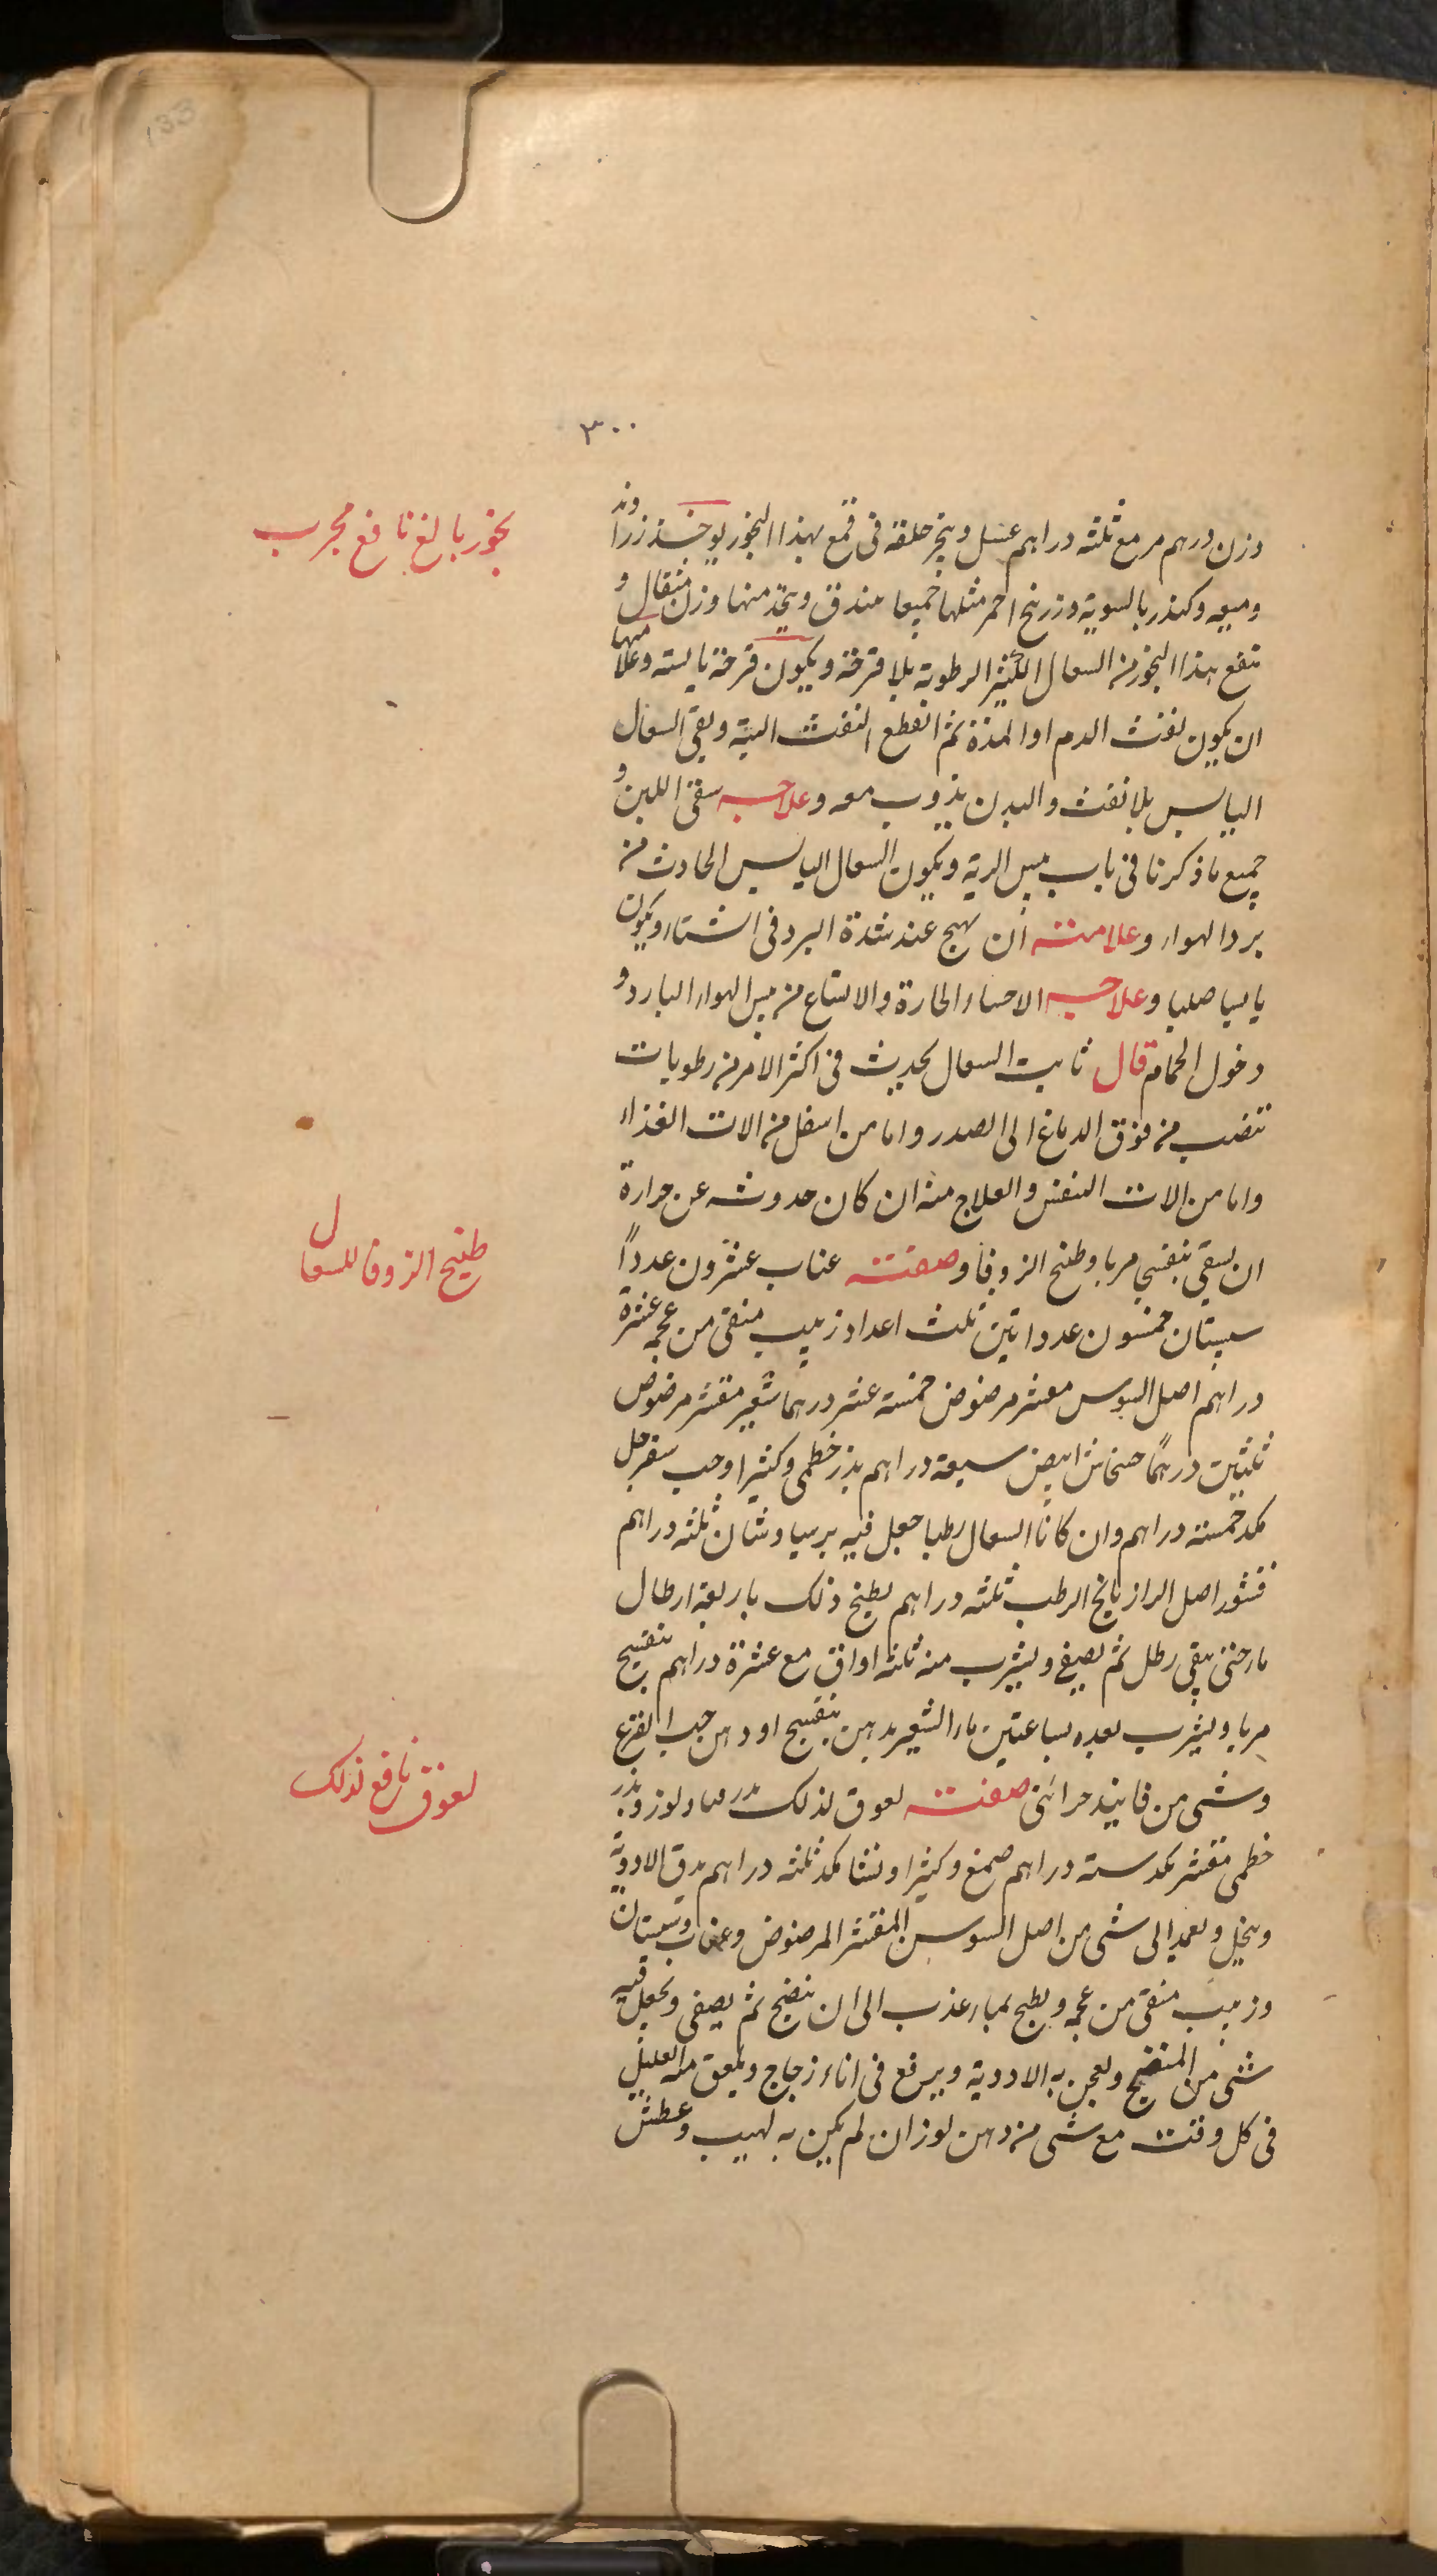 ٣٠٠
وزن درهم مر مع ثلثه دراهم عسل ويبخر حلقه فى قمع بهذا البخور يوخذ زراوند
وميعه وكندر بالسوية وزرنيخ احمر مثلها جميعا يندق ويتخذ منها وزن مثقال و
تنفع هذا البخور من السعال الكثير الرطوبة بلا قرحة ويكون قرحة يابسته وعلامتها
ان يكون نفث الدم او المدة ثم انقطع النفث البتة وبقى السعال
اليابس بلا نفث والبدن يذوب معه وعلاجه سقى اللبن و
جميع ما ذكرنا فى باب يبس الرية ويكون السعال اليابس الحادث من
برد الهواء وعلامته ان يهيج عند شدة البرد فى الشتاء ويكون
يابسا صلبا وعلاجه الاحساء الحارة والامتناع من يبس الهواء البارد و
دخول الحمام قال ثابت السعال يحدث فى اكثر الامر من رطوبات
تنصب من فوق الدماغ الى الصدر واما من اسفل من الات الغذاء
واما من الات النفس والعلاج منه ان كان حدوثه عن حرارة
ان يسقى بنفسج مربا وطبخ الزوفا وصفته عناب عشرون عدداً
سبستان خمسون عددا تين ثلث اعداد زبيب منقى من عجمه عشرة
دراهم اصل السوس مقشر مرضوض خمسة عشر درهما شعير مقشر مرضوض
ثلثين درهمًا خشخاش ابيض سبعة دراهم بذر خطمى وكثيرا وحب سفرجل
مكد خمسته دراهم وان كان السعال رطبا جعل فيه برسياوشان ثلثه دراهم
قشور اصل الرازيانج الرطب ثلثه دراهم يطبخ ذلك باربعة ارطال
ماء حتى يبقى رطل ثم يصفى ويشرب منه ثلثه اواق مع عشرة دراهم بنفسج
مربا ويشرب بعده بساعتين ماء الشعير بدهن بنفسج او دهن حب القرع
وشى من فانيذ حرائنى صفته لعوق لذلك ولوز وبذر
خطمى مقشر مكد سته دراهم صمغ وكثيرا ونشا مكد ثلثه دراهم يدق الادوية
وينخل ويعمد الى شى من اصل السوس المقشر المرضوض وعناب وسبستان
وزبيب منقى من عجمه ويطبخ بماء عذب الى ان ينضج ثم يصفى ويجعل فيه
شى من ويعجن به الادوية ويرفع فى اناء زجاج ويلعق منه العليل
فى كل وقت مع شى من دهن لوز ان لم يكن به لهيب وعطش
بخور بالغ نافع مجرب
طبيخ الزوفا للسعال
لعوق نافع لذلك
133